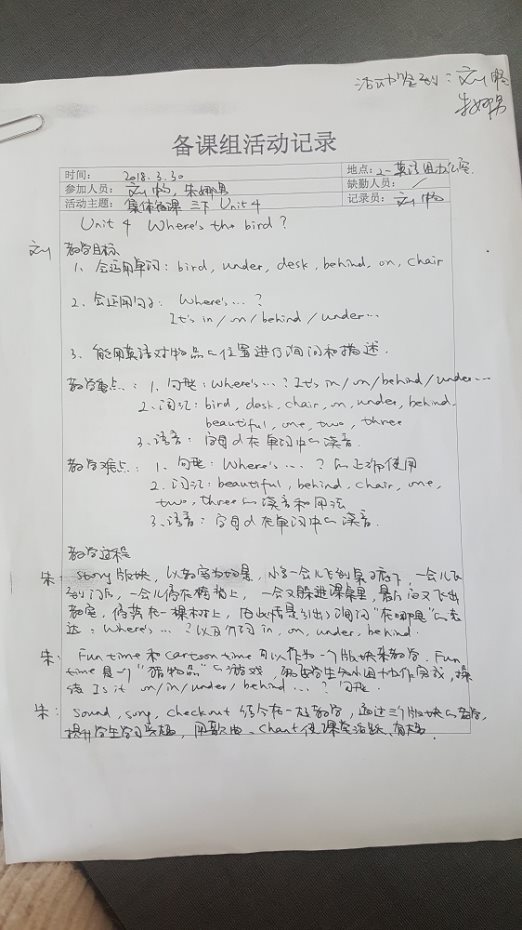 活动签到：刘畅
朱娜男
备课组活动记录
时间： 2018.3.30 地点：2-英语组办公室
参加人员：刘畅, 朱娜男 缺勤人员：/
活动主题：集体备课 三下 Unit 4 记录员：刘畅
Unit 4 Where's the bird?
刘 教学目标
1、会运用单词：bird, under, desk, behind, on, chair
2、会运用句子：Where's…?
It's in/on/behind/under…
3、能用英语对物品的位置进行询问和描述.
教学重点：1、句型：Where's…? It's in/on/behind/under…
2、词汇：bird, desk, chair, on, under, behind,
beautiful, one, two, three
3、语音：字母d在单词中的读音.
教学难点：1、句型：Where's…?的正确使用
2、词汇：beautiful, behind, chair, one,
two, three的读音和用法
3、语音：字母d在单词中的读音.
教学过程
朱：story版块，以教室为场景，小鸟一会儿飞到桌子底下，一会儿飞
到门后，一会儿停在椅背上，一会又躲进课桌里，最后又飞出
教室，停落在一棵树上，由此情景引出了询问"在哪里"的表
达：Where's…?以及介词in, on, under, behind.
朱：Fun time和cartoon time可以作为一个版块来教学. Fun
time是一个"猜物品"的游戏，学生小组力作完成，操
练Is it on/in/under/behind…?句型.
朱：sound, song, checkout 结合在一起教学，通过三个版块的教学，
提升学生学习兴趣，用歌曲、chant使课堂活跃、有趣.